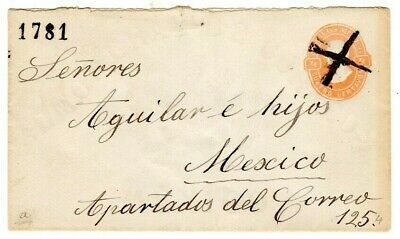 1781
Señores
Aguilar é hijos
Mexico
Apartados del Correo
125
a